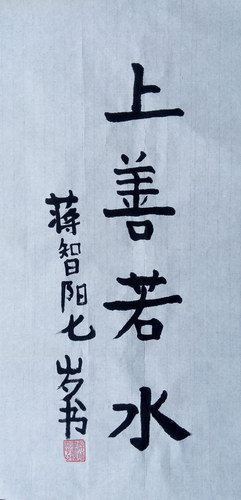 上善若水
蒋智阳七岁书